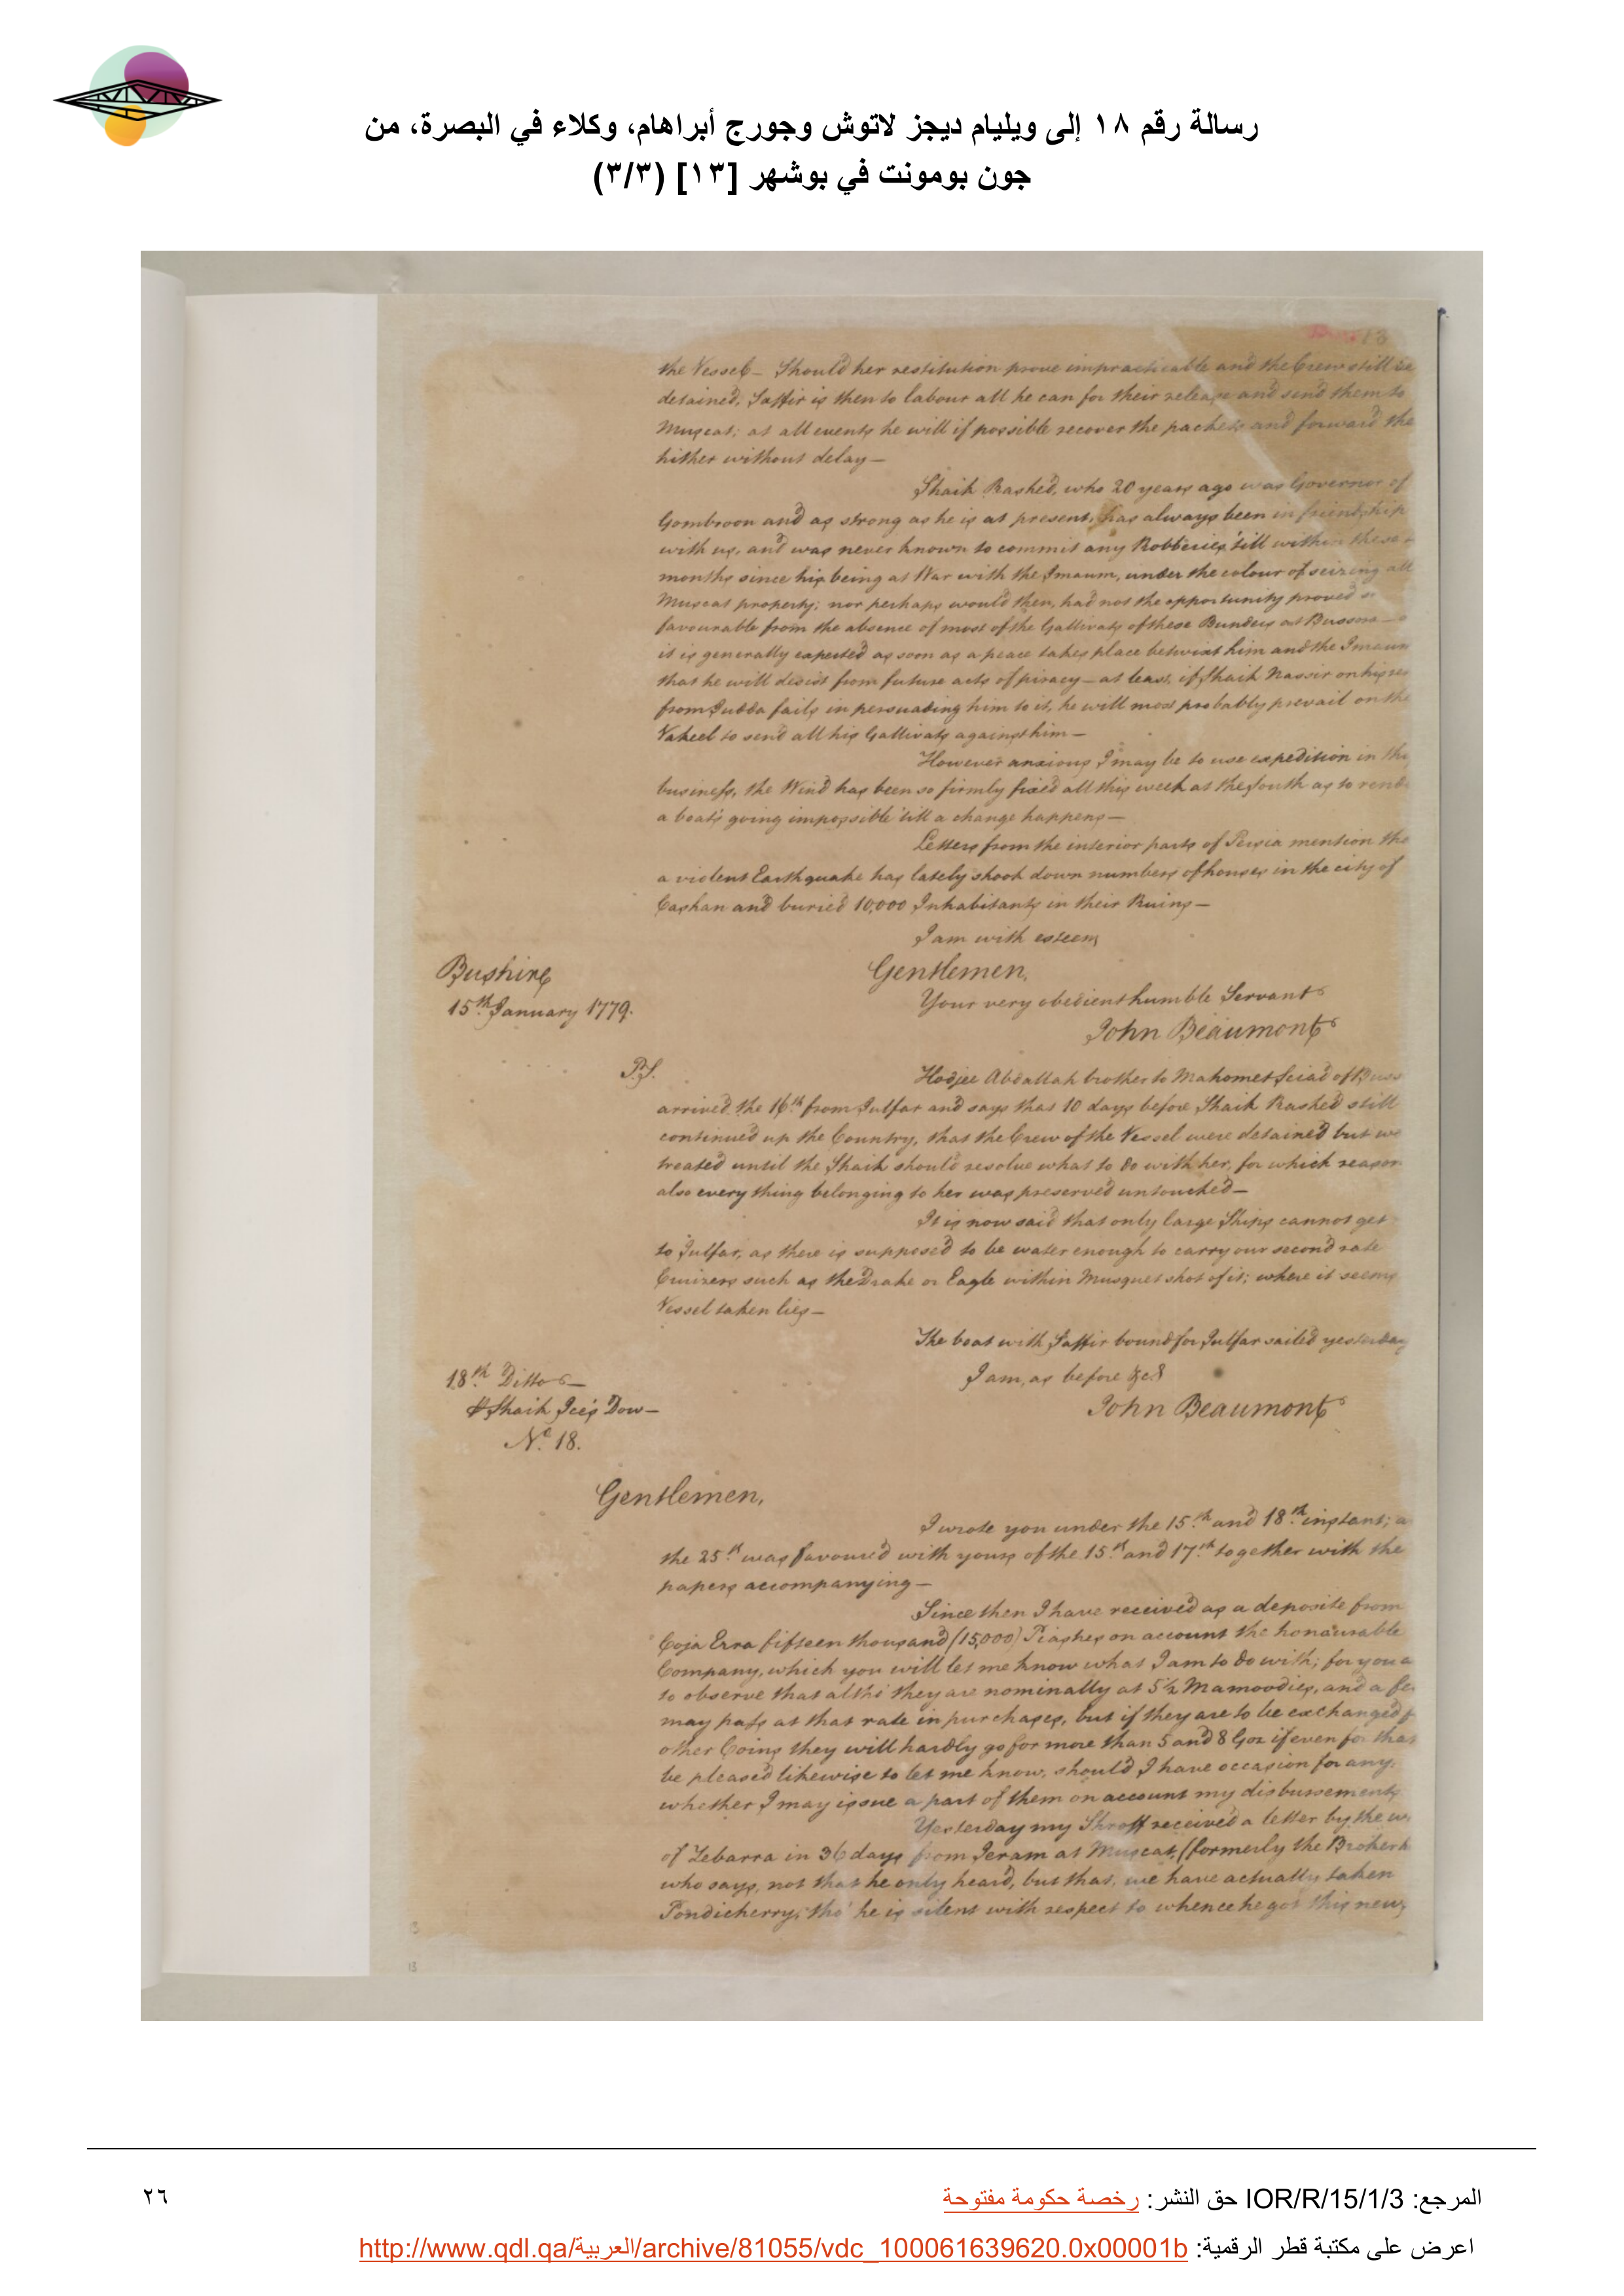 رسالة رقم ١٨ إلى ويليام ديجز لاتوش وجورج أبراهام، وكلاء في البصرة، من
جون بومونت في بوشهر [١٣] (٣/٣)
13
the Vessel_ Should her restitution prove impracticable and the Crew still be
detained, Saffir is then to labour all he can for their release and send them to
Muscat; at all events he will if possible recover the packets and forward the
hither without delay_
Shaik Rashed, who 20 years ago was Governor of
Gombroon and as strong as he is at present, has always been in friendship
with us, and was never known to commit any Robberies 'till within these
months since his being at War with the Imaum, under the colour of seizing all
Muscat property; nor perhaps would then, had not the opportunity proved so
favourable from the absence of most of the Gallivats of these Bunders at Bussora_
it is generally expected as soon as a peace takes place betwixt him and the Imaum
that he will desist from future acts of piracy_ at least, if Shaik Nassir on his
from Judda fails in persuading him to it, he will most probably prevail on the
Vakeel to send all his Gallivats against him_
However anxious I may be to use expedition in this
business, the Wind has been so firmly fixed all this week at the South as to rende
a boat's going impossible 'till a change happens_
Letters from the interior parts of Persia mention tha
a violent Earthquake has lately shook down numbers of houses in the city of
Cashan and buried 10,000 Inhabitants in their Ruins_
I am with esteem,
Gentlemen,
Bushire
Your very obedient humble Servant
15th January 1779.
John Beaumont
P.S.
Hodjee Abdallah brother to Mahomet Seiad of Buss
arrived the 16th from Julfar and says that 10 days before Shaik Rashed still
continued up the Country, that the Crew of the Vessel were detained but we
treated until the Shaik should resolve what to do with her, for which reason
also every thing belonging to her was preserved untouched_
It is now said that only large Ships cannot get
to Julfar, as there is supposed to be water enough to carry our second rate
Cruizers such as the Drake or Eagle within Musquet shot of it; where it seems
Vessel taken lies_
The boat with Saffir bound for Julfar sailed yesterday
18th Ditto_
I am, as before &c.
Shaik Dow_
John Beaumont
No. 18.
Gentlemen,
I wrote you under the 15th and 18th instant; a
the 25th was favoured with yours of the 15th and 17th together with the
papers accompanying_
Since then I have received as a deposite from
Coja Erra fifteen thousand (15,000) Piastres on account the honourable
Company, which you will let me know what I am to do with; for you a
to observe that altho' they are nominally at 5½ Mamoodies, and a fe
may pass at that rate in purchases, but if they are to be exchanged f
other Coins they will hardly go for more than 5 and 8 Goz if even for that
be pleased likewise to let me know, should I have occasion for any,
whether I may issue a part of them on account my disbursements
Yesterday my Shroff received a letter by the w
of Zebarra in 36 days from Jeram at Muscat, (formerly the Broker
who says, not that he only heard, but that, we have actually taken
Pondicherry; tho' he is silent with respect to whence he got this news
13
المرجع: IOR/R/15/1/3 حق النشر: رخصة حكومة مفتوحة
٢٦
اعرض على مكتبة قطر الرقمية: http://www.qdl.qa/العربية/archive/81055/vdc_100061639620.0x00001b